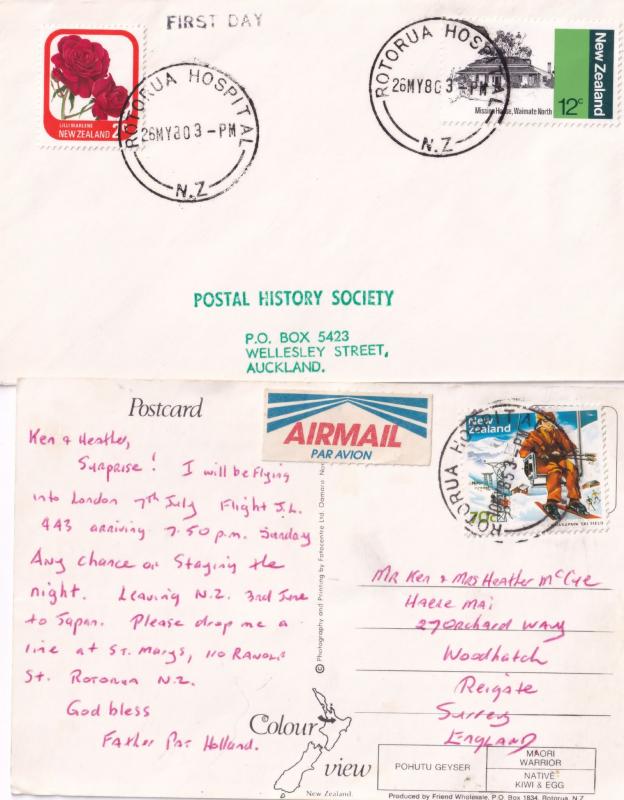 FIRST DAY
LILLI MARLENE
NEW ZEALAND 2c
ROTORUA HOSPITAL
26MY80 3 - PM
N.Z
ROTORUA HOSPITAL
26MY80 3 - PM
N.Z
New Zealand
Mission House, Waimate North 12c
POSTAL HISTORY SOCIETY
P.O. BOX 5423
WELLESLEY STREET,
AUCKLAND.
Postcard
AIRMAIL
PAR AVION
Ken & Heather,
Surprise! I will be flying
into London 7th July Flight J.L.
443 arriving 7.50 p.m. Sunday
Any chance of staying the
night. Leaving N.Z. 3rd June
to Japan. Please drop me a
line at St. Marys, 110 Ranolf
St. Rotorua N.Z.
God bless
Father Pat Holland.
© Photography and Printing by Fotocentre Ltd. Oamaru.
New Zealand
78c
ROTORUA HOSPITA
85 3 - PM
Mr Ken & Mrs Heather McCye
Haere Mai
27 Orchard Way
Woodhatch
Reigate
Surrey
England
Colour
view
New Zealand.
POHUTU GEYSER
MAORI
WARRIOR
NATIVE
KIWI & EGG
Produced by Friend Wholesale, P.O. Box 1834, Rotorua, N.Z.